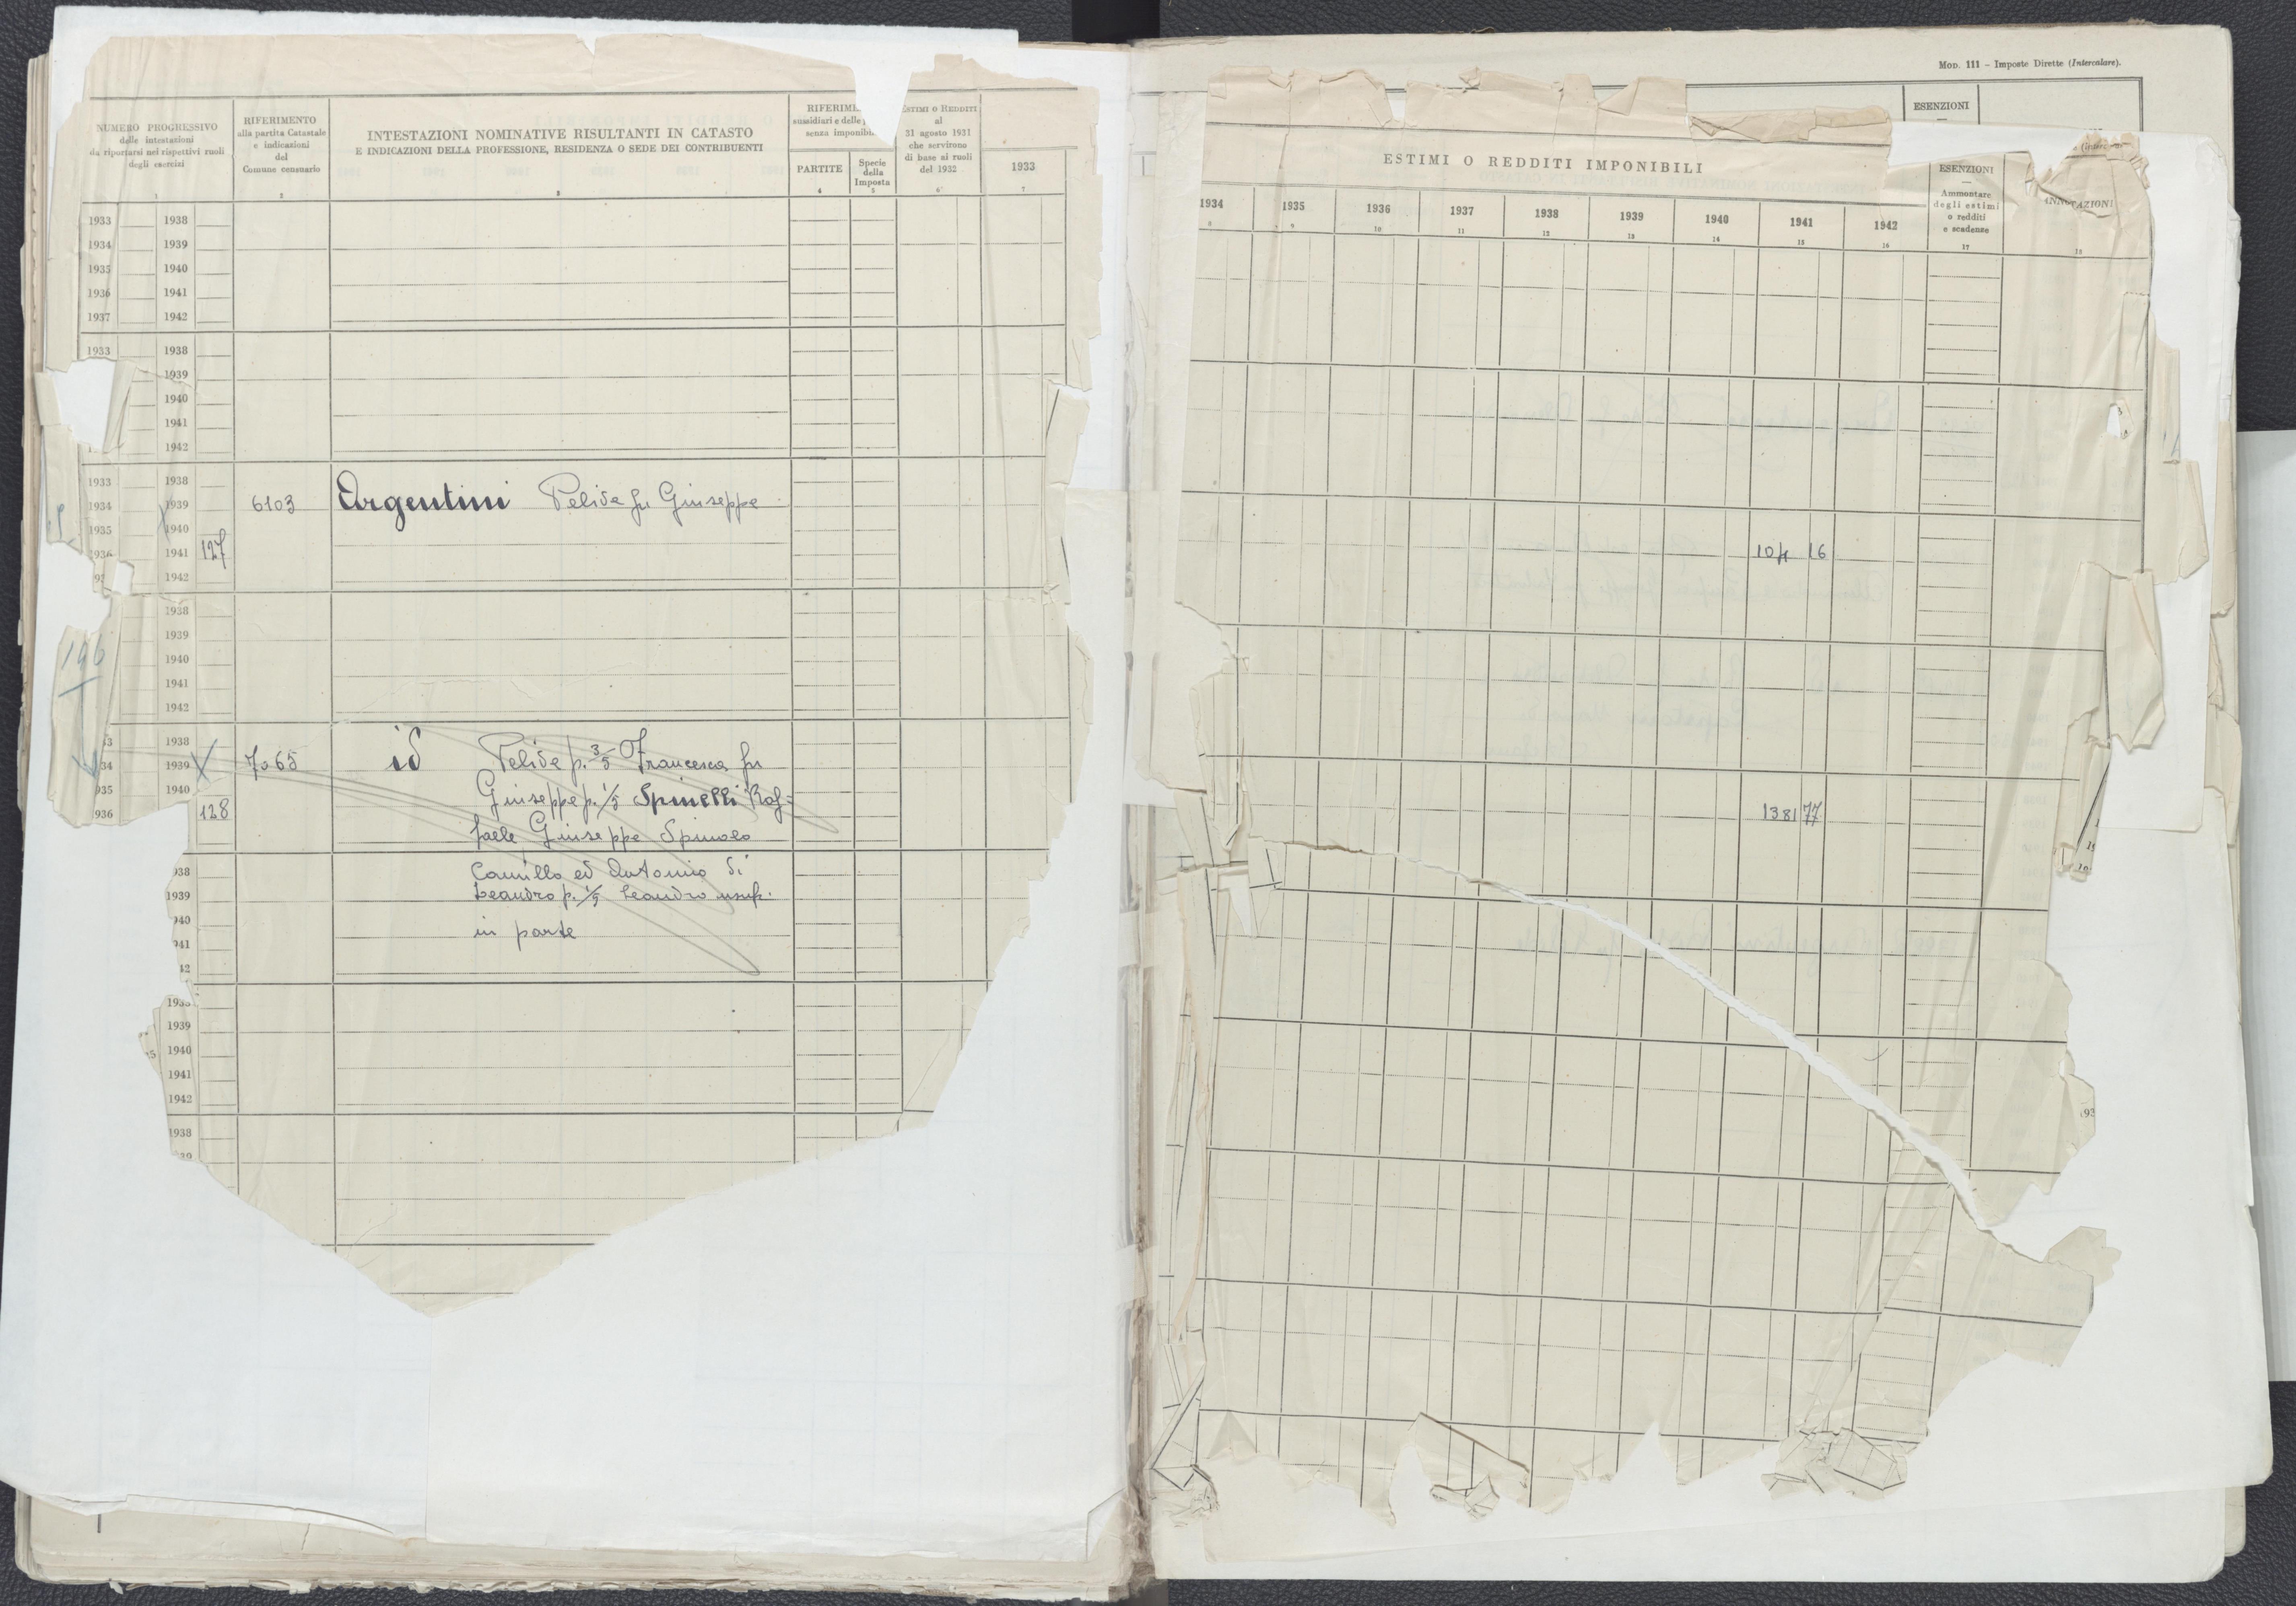 NUMERO PROGRESSIVO
delle intestazioni
da riportarsi nei rispettivi ruoli
degli esercizi
1
RIFERIMENTO
alla partita Catastale
e indicazioni
del
Comune censuario
2
INTESTAZIONI NOMINATIVE RISULTANTI IN CATASTO
E INDICAZIONI DELLA PROFESSIONE, RESIDENZA O SEDE DEI CONTRIBUENTI
3
RIFERIME
sussidiari e delle
senza imponibi
PARTITE
4
Specie
della
Imposta
5
ESTIMI O REDDITI
al
31 agosto 1931
che servirono
di base ai ruoli
del 1932
6
1933
7
1933 1938
1934 1939
1935 1940
1936 1941
1937 1942
1933 1938
1939
1940
1941
1942
1933 1938
1934 1939 6103 Argentini Pelide fu Giuseppe
1935 1940
1936 1941 127
1942
1938
1939
196 1940
1941
1942
1938
1939 7065 id Pelide p. 3/5 Francesca fu
1940 Giuseppe p. 1/5 Spinelli Raf=
936 128 faele Giuseppe Spinolo
938 Camillo ed Antonio di
1939 Leandro p. 1/5 Leandro usuf.
940 in parte
941
42
1939
1940
1941
1942
1938
MOD. 111 - Imposte Dirette (Intercalare).
ESENZIONI
ESTIMI O REDDITI IMPONIBILI
1934
8
1935
9
1936
10
1937
11
1938
12
1939
13
1940
14
1941
15
1942
16
ESENZIONI
Ammontare
degli estimi
o redditi
e scadenze
17
ANNOTAZIONI
18
104 16
1381 77